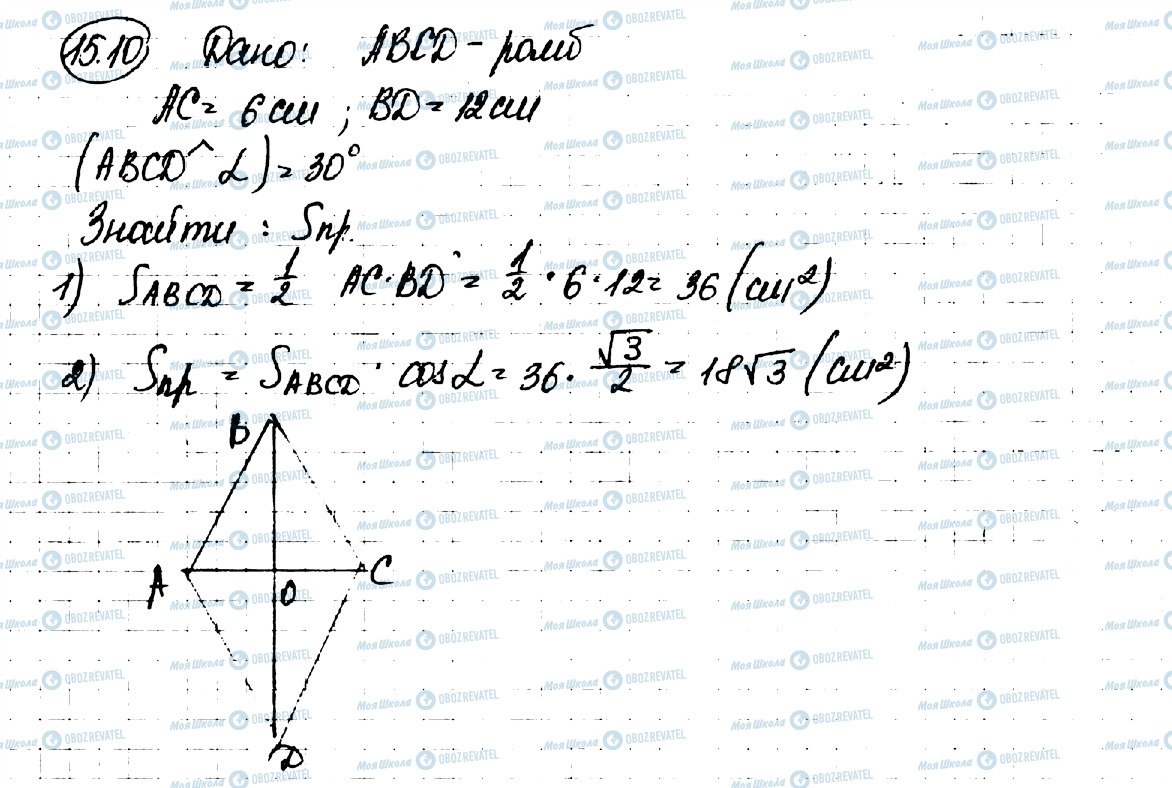 15.10 Дано: ABCD - ромб
AC = 6 см ; BD = 12 см
(ABCD ^ α) = 30°
Знайти : Sпр.
1) S_ABCD = 1/2 AC · BD = 1/2 · 6 · 12 = 36 (см²)
2) Sпр = S_ABCD · cos α = 36 · √3/2 = 18√3 (см²)
B
A O C
D
МояШкола OBOZREVATEL